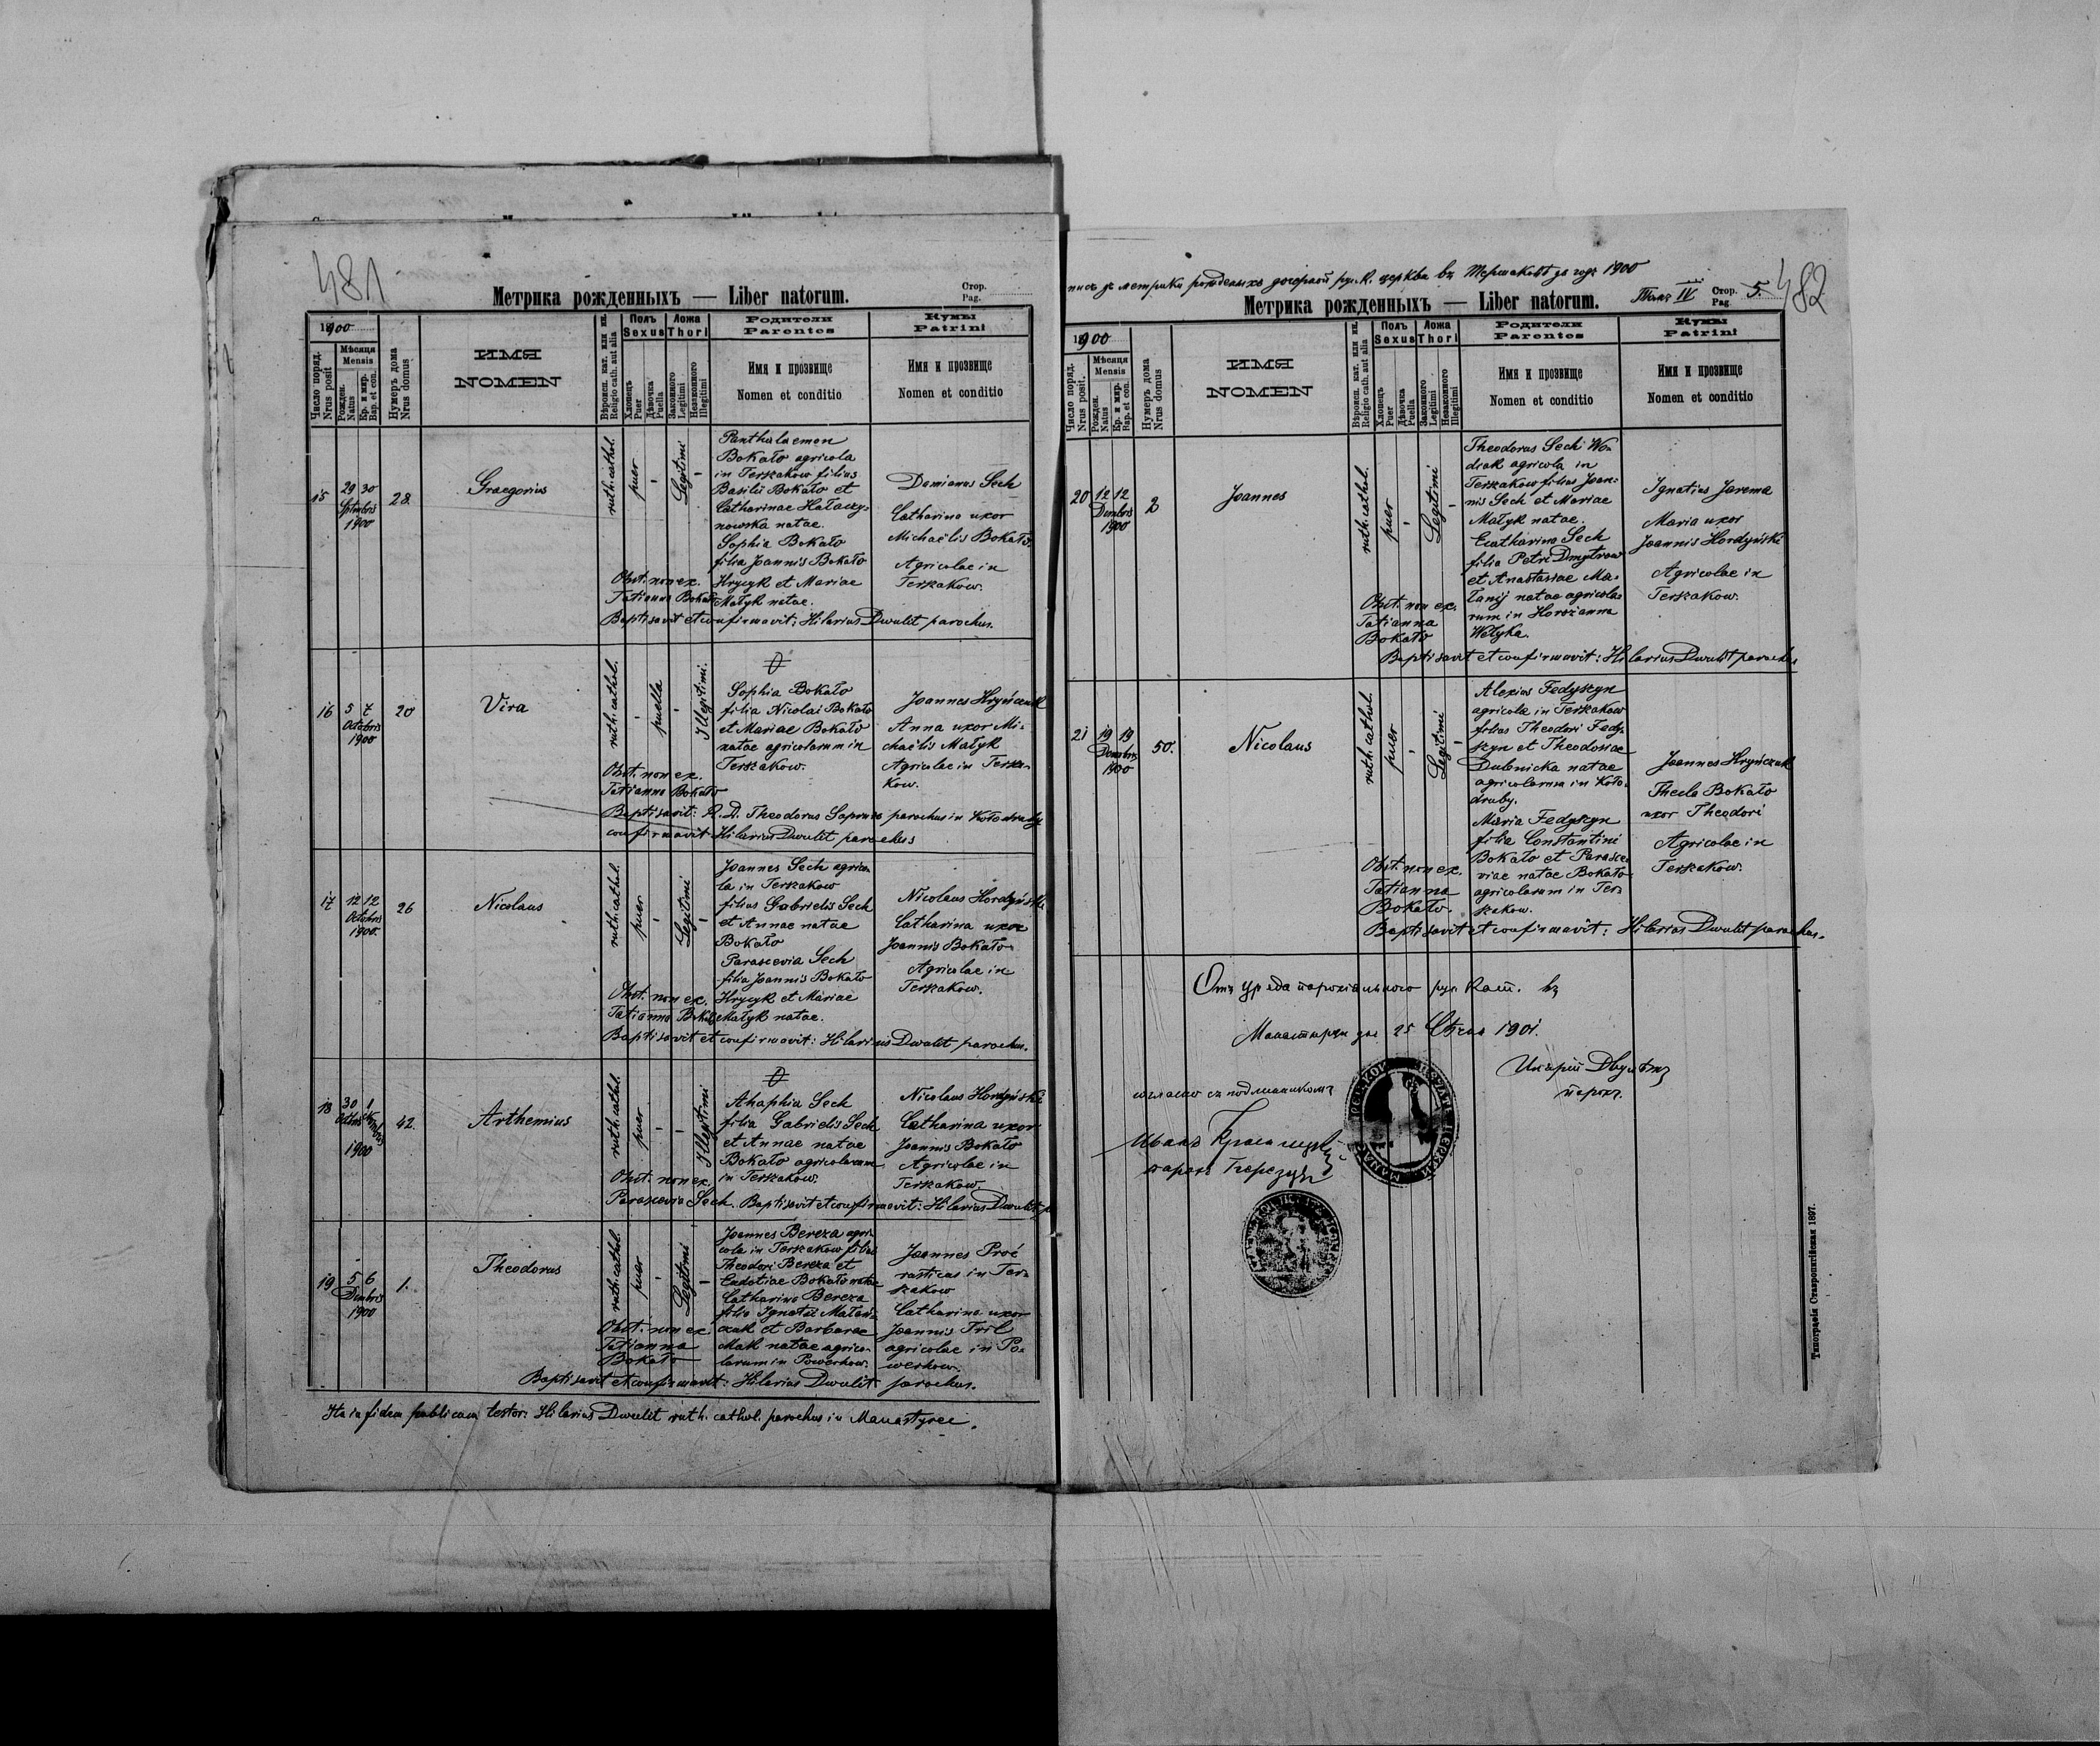 481
Метрика рожденныхъ — Liber natorum.
Стор.
Pag.
1900
Число поряд.
Nrus posit
Мѣсяця
Mensis
Рожден.
Natus
Кр. и мир.
Bap. et con.
Нумеръ дома
Nrus domus
ИМЯ
NOMEN
Вѣроисп. кат. или ин.
Religio cath. aut alia
Полъ
Sexus
Хлопець
Puer
Дѣвочка
Puella
Ложа
Thori
Законного
Legitimi
Незаконного
Illegitimi
Родители
Parentes
Имя и прозвище
Nomen et conditio
Кумы
Patrini
Имя и прозвище
Nomen et conditio
15
29 30
Septembris
1900
28
Graegorius
ruth. cathol.
puer
Legitimi
Panthalaemon
Bokało agricola
in Terszakow filius
Basilii Bokało et
Catharinae Hałaczy-
nowska natae.
Sophia Bokało
filia Joannis Bokało
Hrycyk et Mariae
Małyk natae.
Damianus Sech
Catharina uxor
Michaëlis Bokało.
Agricolae in
Terszakow.
Obst. non ex.
Tatianna Bokało
Baptisavit et confirmavit: Hilarius Dwulit parochus.
16
5 7
Octobris
1900
20
Vira
ruth. cathol.
puella
Illegitimi.
Sophia Bokało
filia Nicolai Bokało
et Mariae Bokało
natae agricolarum in
Terszakow.
Joannes Hryńczak
Anna uxor Mi-
chaëlis Małyk
Agricolae in Tersza-
kow.
Obst. non ex.
Tatianna Bokało
Baptisavit: R. D. Theodorus parochus in Kołodruby
confirmavit Hilarius Dwulit parochus
17
12 12
Octobris
1900.
26
Nicolaus
ruth. cathol.
puer
Legitimi
Joannes Sech agrico-
la in Terszakow
filius Gabrielis Sech
et Annae natae
Bokało
Parascevia Sech
filia Joannis Bokało
Hrycyk et Mariae
Małyk natae.
Nicolaus Hordyński
Catharina uxor
Joannis Bokało
Agricolae in
Terszakow.
Obst. non ex.
Tatianna Bokało
Baptisavit et confirmavit: Hilarius Dwulit parochus.
18
30 1
1900
42
Arthemius
ruth. cathol.
puer
Illegitimi
Ahaphia Sech
filia Gabrielis Sech
et Annae natae
Bokało agricolarum
in Terszakow.
Nicolaus Hordyński
Catharina uxor
Joannis Bokało
Agricolae in
Terszakow.
Obst. non ex.
Parascevia Sech. Baptisavit et confirmavit: Hilarius Dwulit
19
5 6
Dcmbris
1900
1.
Theodorus
ruth. cathol.
puer
Legitimi
Joannes Bereza agri-
cola in Terszakow filius
Theodori Bereza et
Eudotiae Bokało natae
Catharina Bereza
filia Ignatii
et Barbarae
Mak natae agrico-
larum in Powerchow.
Joannes Proć
rusticus in Ter-
szakow
Catharina uxor
Joannis Tril
agricolae in Po-
werhow.
Obst. non ex.
Tatianna
Bokało
Baptisavit et confirmavit: Hilarius Dwulit parochus.
Ita in fidem publicam testor: Hilarius Dwulit ruth. cathol. parochus in Manastyrec.
482
церкви въ Тершаковѣ за годъ 1900
Метрика рожденныхъ — Liber natorum.
Томъ IV
Стор.
Pag.
5.
1900
Число поряд.
Nrus posit.
Мѣсяця
Mensis
Рожден.
Natus
Кр. и мир.
Bap. et con.
Нумеръ дома
Nrus domus
ИМЯ
NOMEN
Вѣроисп. кат. или ин.
Religio cath. aut alia
Полъ
Sexus
Хлопець
Puer
Дѣвочка
Puella
Ложа
Thori
Законного
Legitimi
Незаконного
Illegitimi
Родители
Parentes
Имя и прозвище
Nomen et conditio
Кумы
Patrini
Имя и прозвище
Nomen et conditio
20
12 12
Dcmbris
1900
2
Joannes
ruth. cathol.
puer
Legitimi
Theodorus Sech Wo-
dcak agricola in
Terszakow filius Joan-
nis Sech et Mariae
Małyk natae.
Catharina Sech
filia Petri Dmytrow
et Anastasiae Ma-
łanij natae agricola-
rum in Horożanna
Wełyka.
Ignatius Jarema
Maria uxor
Joannis Hordyński
Agricolae in
Terszakow.
Obst. non ex.
Tatianna
Bokało
Baptisavit et confirmavit: Hilarius Dwulit parochus
21
19 19
Dcmbris
1900
50.
Nicolaus
ruth. cathol.
puer
Legitimi
Alexius Fedyszyn
agricola in Terszakow
filius Theodori Fedy-
szyn et Theodosiae
Dubnicka natae
agricolarum in Koło-
druby.
Maria Fedyszyn
filia Constantini
Bokało et Parasce-
viae natae Bokało
agricolarum in Ter-
szakow.
Joannes Hryńczak
Thecla Bokało
uxor Theodori
Agricolae in
Terszakow.
Obst. non ex.
Tatianna
Bokało.
Baptisavit et confirmavit: Hilarius Dwulit parochus.
Отъ уряда парохіального рус. кат. въ
25 Січня 1901.
Иларій Двулѣтъ
парох.
Иванъ
парохъ
Типографія Ставропигійская 1897.